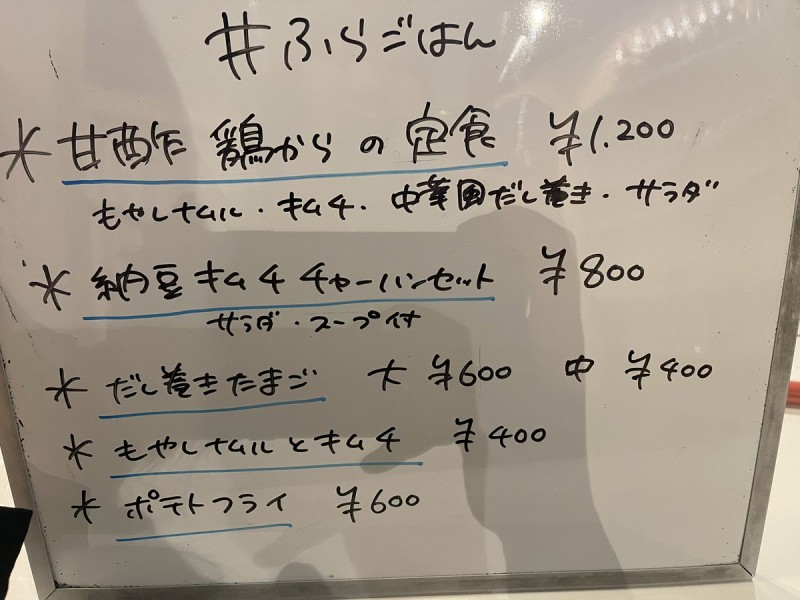 #ふらごはん
* 甘酢 鶏からの定食 ¥1.200
もやしナムル・キムチ・中華風だし巻き・サラダ
* 納豆キムチチャーハンセット ¥800
サラダ・スープ付
* だし巻きたまご 大 ¥600 中 ¥400
* もやしナムルとキムチ ¥400
* ポテトフライ ¥600